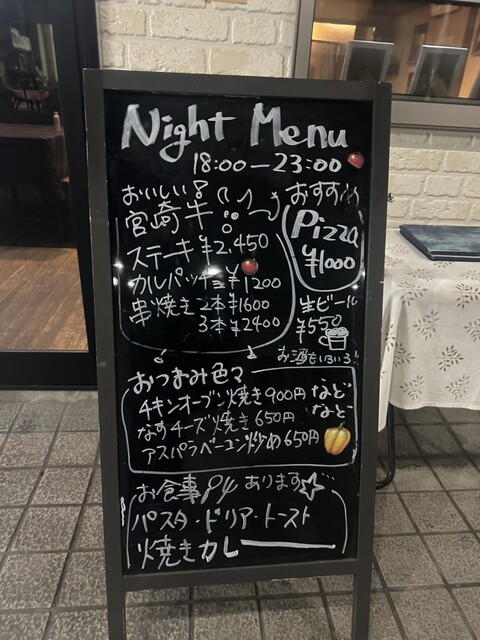 Night Menu
18:00—23:00
おいしい!
宮崎牛
ステーキ ¥2,450
カルパッチョ ¥1200
串焼き 2本 ¥1600
3本 ¥2400
おすすめ
Pizza
¥1000
生ビール
¥550
お酒もいろいろ!!
おつまみ色々
チキンオーブン焼き 900円 など
なすチーズ焼き 650円 など
アスパラベーコン炒め 650円
お食事 あります☆
パスタ・ドリア・トースト
焼きカレー